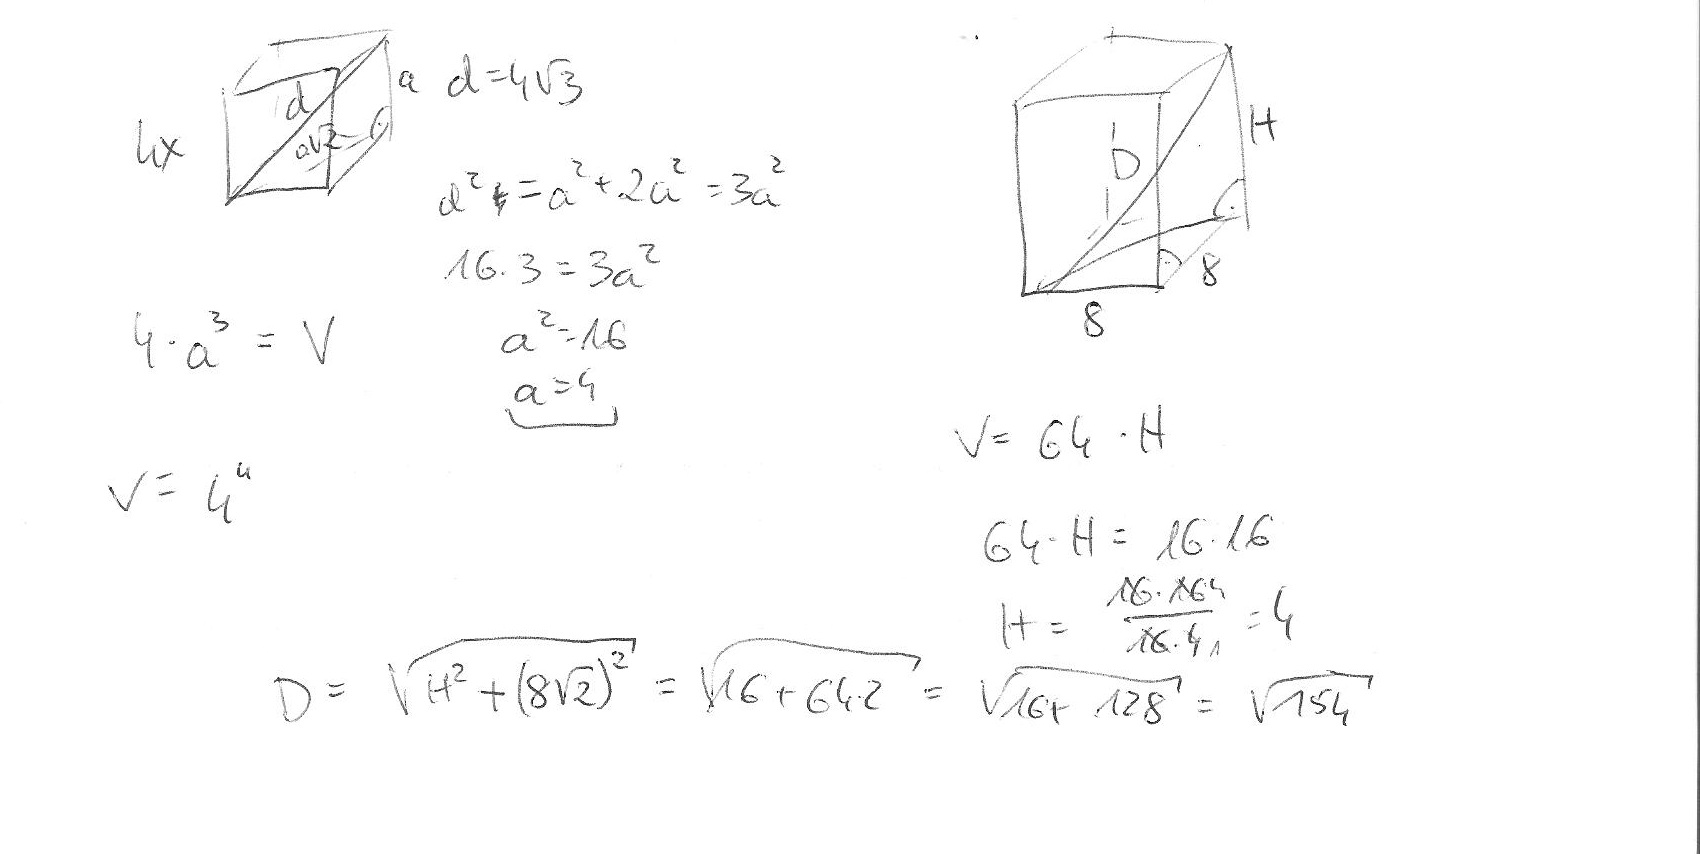 4x
d
a√2
a
d=4√3
d² = a² + 2a² = 3a²
16·3 = 3a²
a² = 16
a = 4
4·a³ = V
V = 4⁴
D
H
8
8
V = 64 · H
64·H = 16·16
H = 16·16 4 / 16·4 1 = 4
D = √(H² + (8√2)²) = √(16 + 64·2) = √(16 + 128) = √154